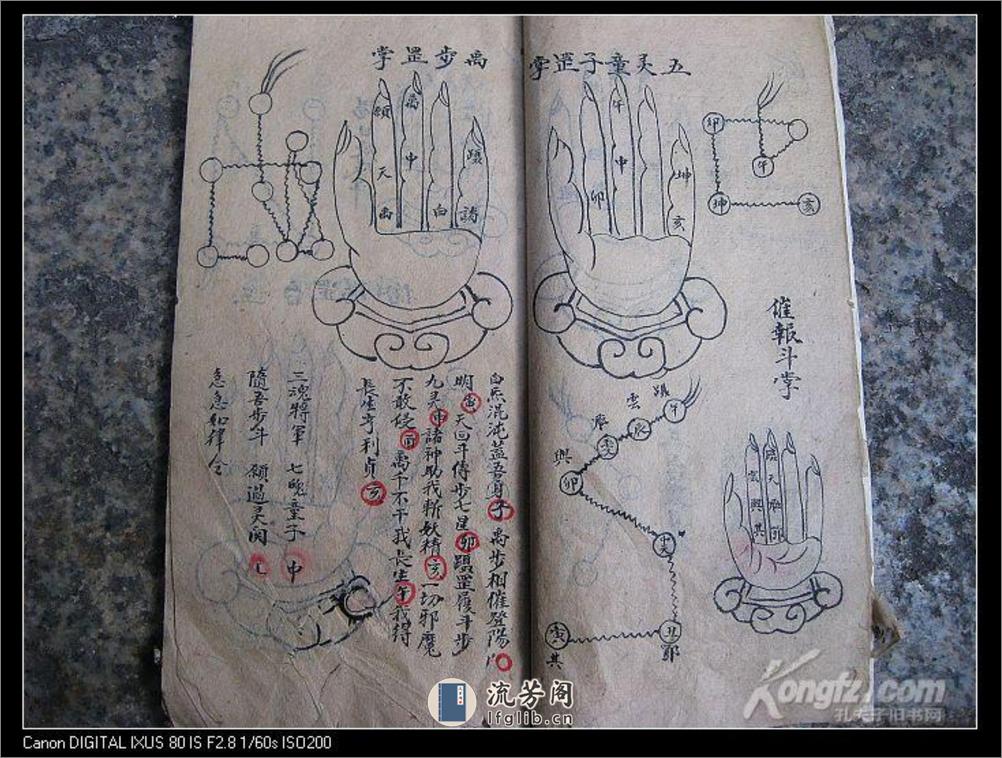 五灵童子罡掌
卯
午
坤
亥
午
申
卯
坤
亥
催報斗掌
躡
雲
午
辰
卯
興
丑
寅
其
禹步罡掌
天
申
白
躡
諸
白炁混沌蓋吾身子禹步相催登陽
明 天囬斗傳步七星卯躡罡履斗步
九灵申諸神助我斬妖精亥一切邪魔
不敢侵 禹千不干我長生午我得
長生亨利貞亥
三魂將軍 七魄童子 申
隨吾步斗 願過灵関
急急如律令
流芳阁
lfglib.cn
Kongfz.com
孔夫子旧书网
Canon DIGITAL IXUS 80 IS F2.8 1/60s ISO200